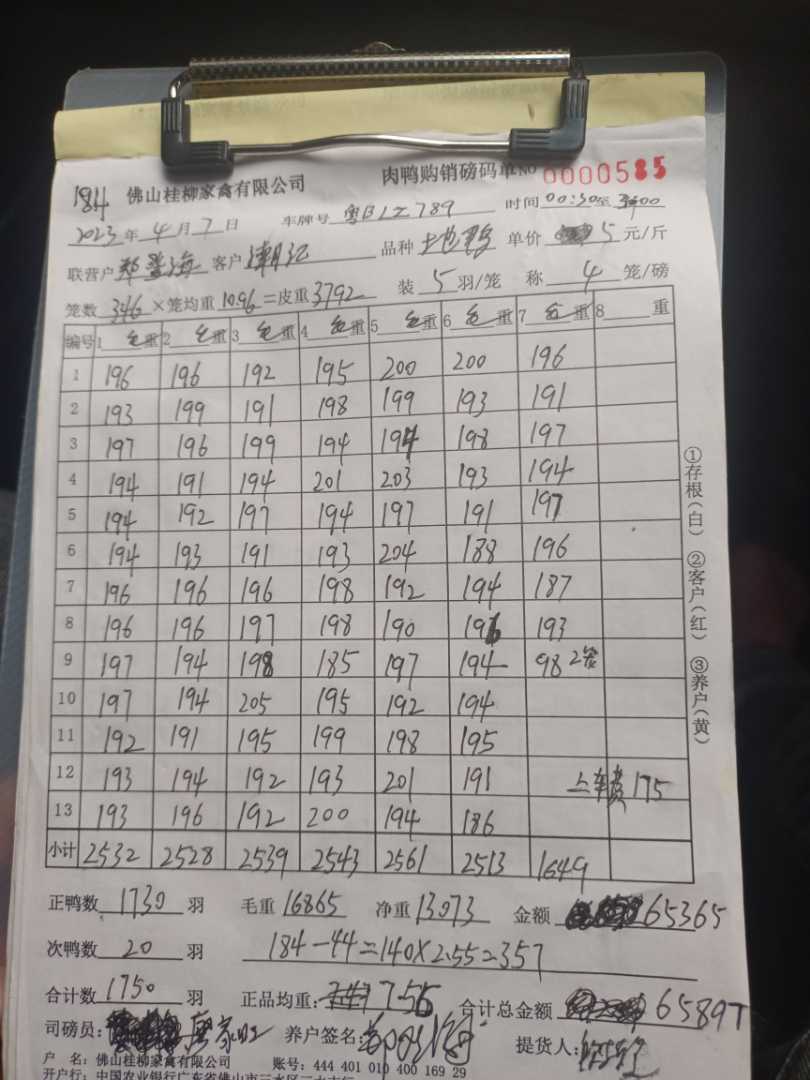 184 佛山桂柳家禽有限公司 肉鸭购销磅码单 NO 0000585
2023 年 4 月 7 日 车牌号 粤BLZ789 时间 00:30 至
联营户 客户 潮记 品种 土地鸭 单价 5 元/斤
笼数 346 ×笼均重 10.96 =皮重 3792 装 5 羽/笼 称 4 笼/磅
编号 1 毛重 2 毛重 3 毛重 4 毛重 5 毛重 6 毛重 7 毛重 8 重
1 196 196 192 195 200 200 196
2 193 199 191 198 199 193 191
3 197 196 199 194 194 198 197
4 194 191 194 201 203 193 194
5 194 192 197 194 197 191 197
6 194 193 191 193 204 188 196
7 196 196 196 198 192 194 187
8 196 196 197 198 190 196 193
9 197 194 198 185 197 194 98 2笼
10 197 194 205 195 192 194
11 192 191 195 199 198 195
12 193 194 192 193 201 191 上车费175
13 193 196 192 200 194 186
小计 2532 2528 2539 2543 2561 2513 1649
正鸭数 1730 羽 毛重 16865 净重 13073 金额 65365
次鸭数 20 羽 184-44=140×2.55=357
合计数 1750 羽 正品均重: 7.56 合计总金额 65897
司磅员: 养户签名: 提货人:
户 名: 佛山桂柳家禽有限公司 账号: 444 401 010 400 169 29
开户行: 中国农业银行广东省佛山市三水区三水支行
①存根(白) ②客户(红) ③养户(黄)